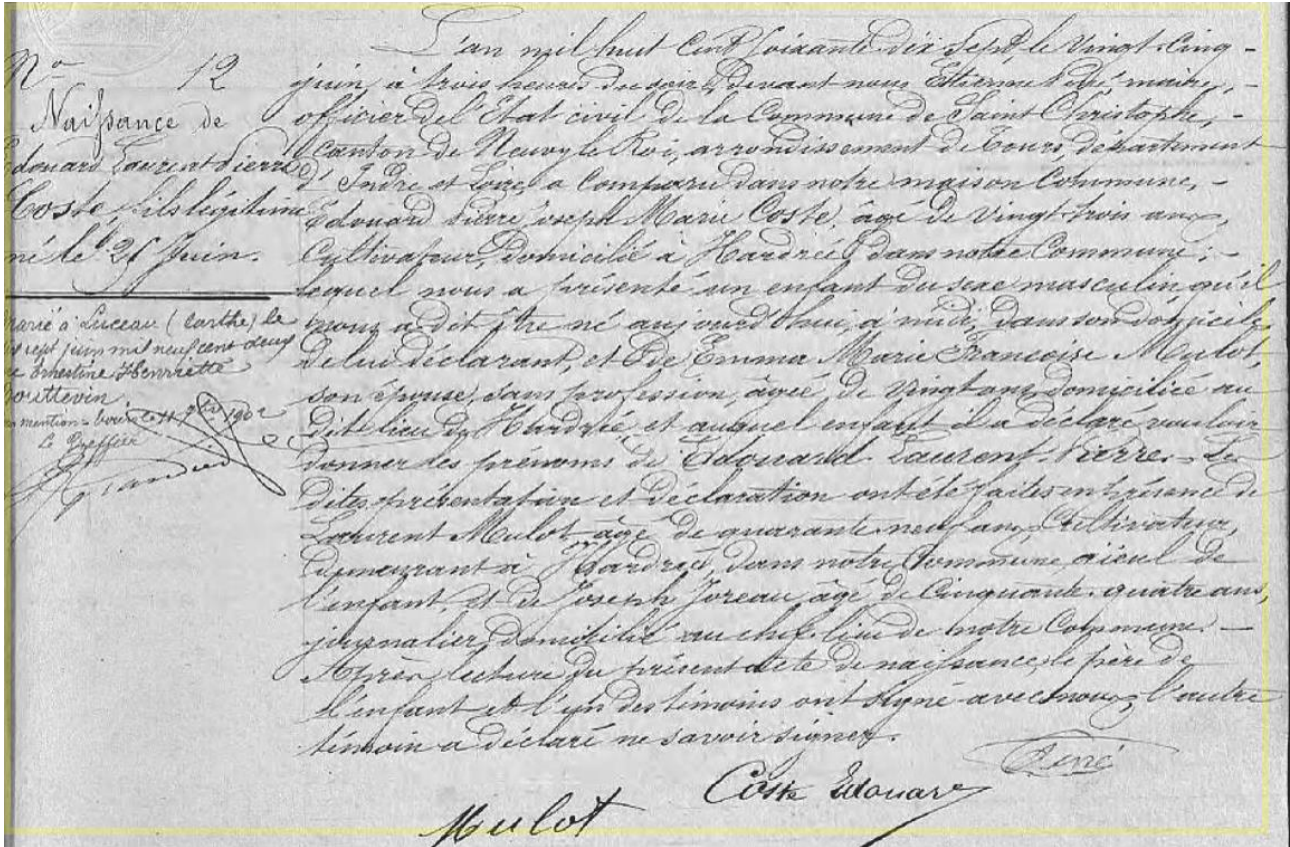 N° 12
Naissance de
Edouard Laurent Pierre
Coste, fils légitime
né le 25 Juin.
marié à Luceau (Sarthe) le
sept juin mil neuf cent deux
Ernestine Henriette
mention Tours le 11 9bre 1902
Le Greffier
L'an mil huit Cent soixante dix sept, le Vingt-Cinq -
juin, à trois heures du soir, devant nous Etienne maire, -
officier de l'Etat civil de la Commune de Saint Christophe, -
Canton de Neuvy le Roi, arrondissement de Tours, département
d'Indre et Loire, a Comparu dans notre maison Commune, -
Edouard Pierre Joseph Marie Coste, âgé de Vingt-trois ans,
Cultivateur, domicilié à Hardrée, dans notre Commune; -
lequel nous a présenté un enfant du sexe masculin qu'il
nous a dit être né aujourd'hui, à midi, dans son domicile,
de lui déclarant, et de Emma Marie Françoise Mulot,
son épouse, sans profession, âgée, de Vingt ans, domiciliée au
dit lieu de Hardrée, et auquel enfant il a déclaré vouloir
donner les prénoms de Edouard Laurent Pierre. Les
dites présentation et déclaration ont été faites en présence de
Laurent Mulot âgé de quarante neuf ans, Cultivateur,
demeurant à Hardrée, dans notre Commune, aïeul de
l'enfant, et de Joseph Joreau, âgé de Cinquante-quatre ans,
journalier, domicilié au chef-lieu de notre Commune. -
Après lecture du présent acte de naissance, le père de
l'enfant et l'un des témoins ont signé avec nous, l'autre
témoin a déclaré ne savoir signer.
Coste Edouard
Mulot